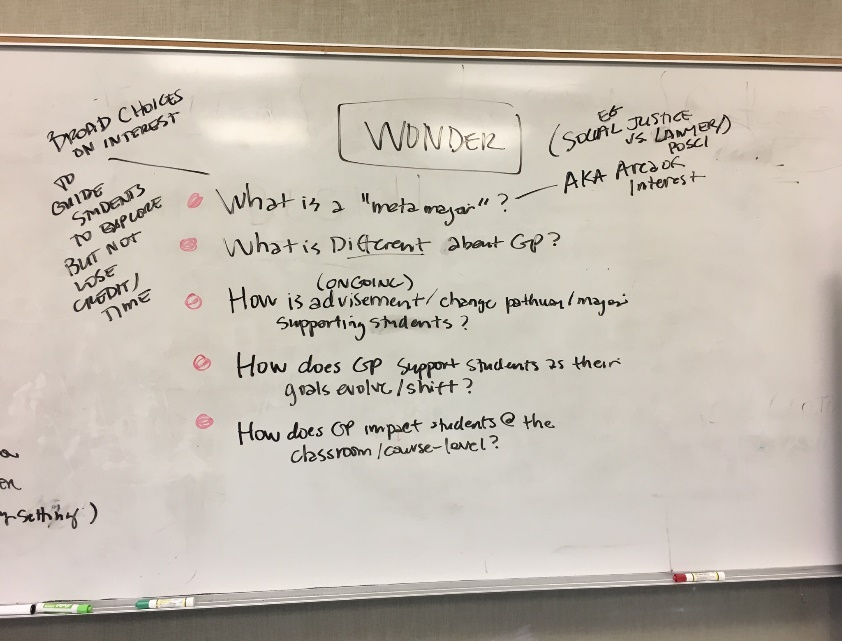 WONDER
BROAD CHOICES
ON INTEREST
TO
GUIDE
STUDENTS
TO EXPLORE
BUT NOT
LOSE
CREDIT/
TIME
EG
(SOCIAL JUSTICE
VS LAWYER/)
POSCI
AKA Area of
Interest
What is a "meta major"?
What is Different about GP?
(ONGOING)
How is advisement/change pathway/major
supporting students?
How does GP support students as their
goals evolve/shift?
How does GP impact students @ the
classroom/course-level?
setting)